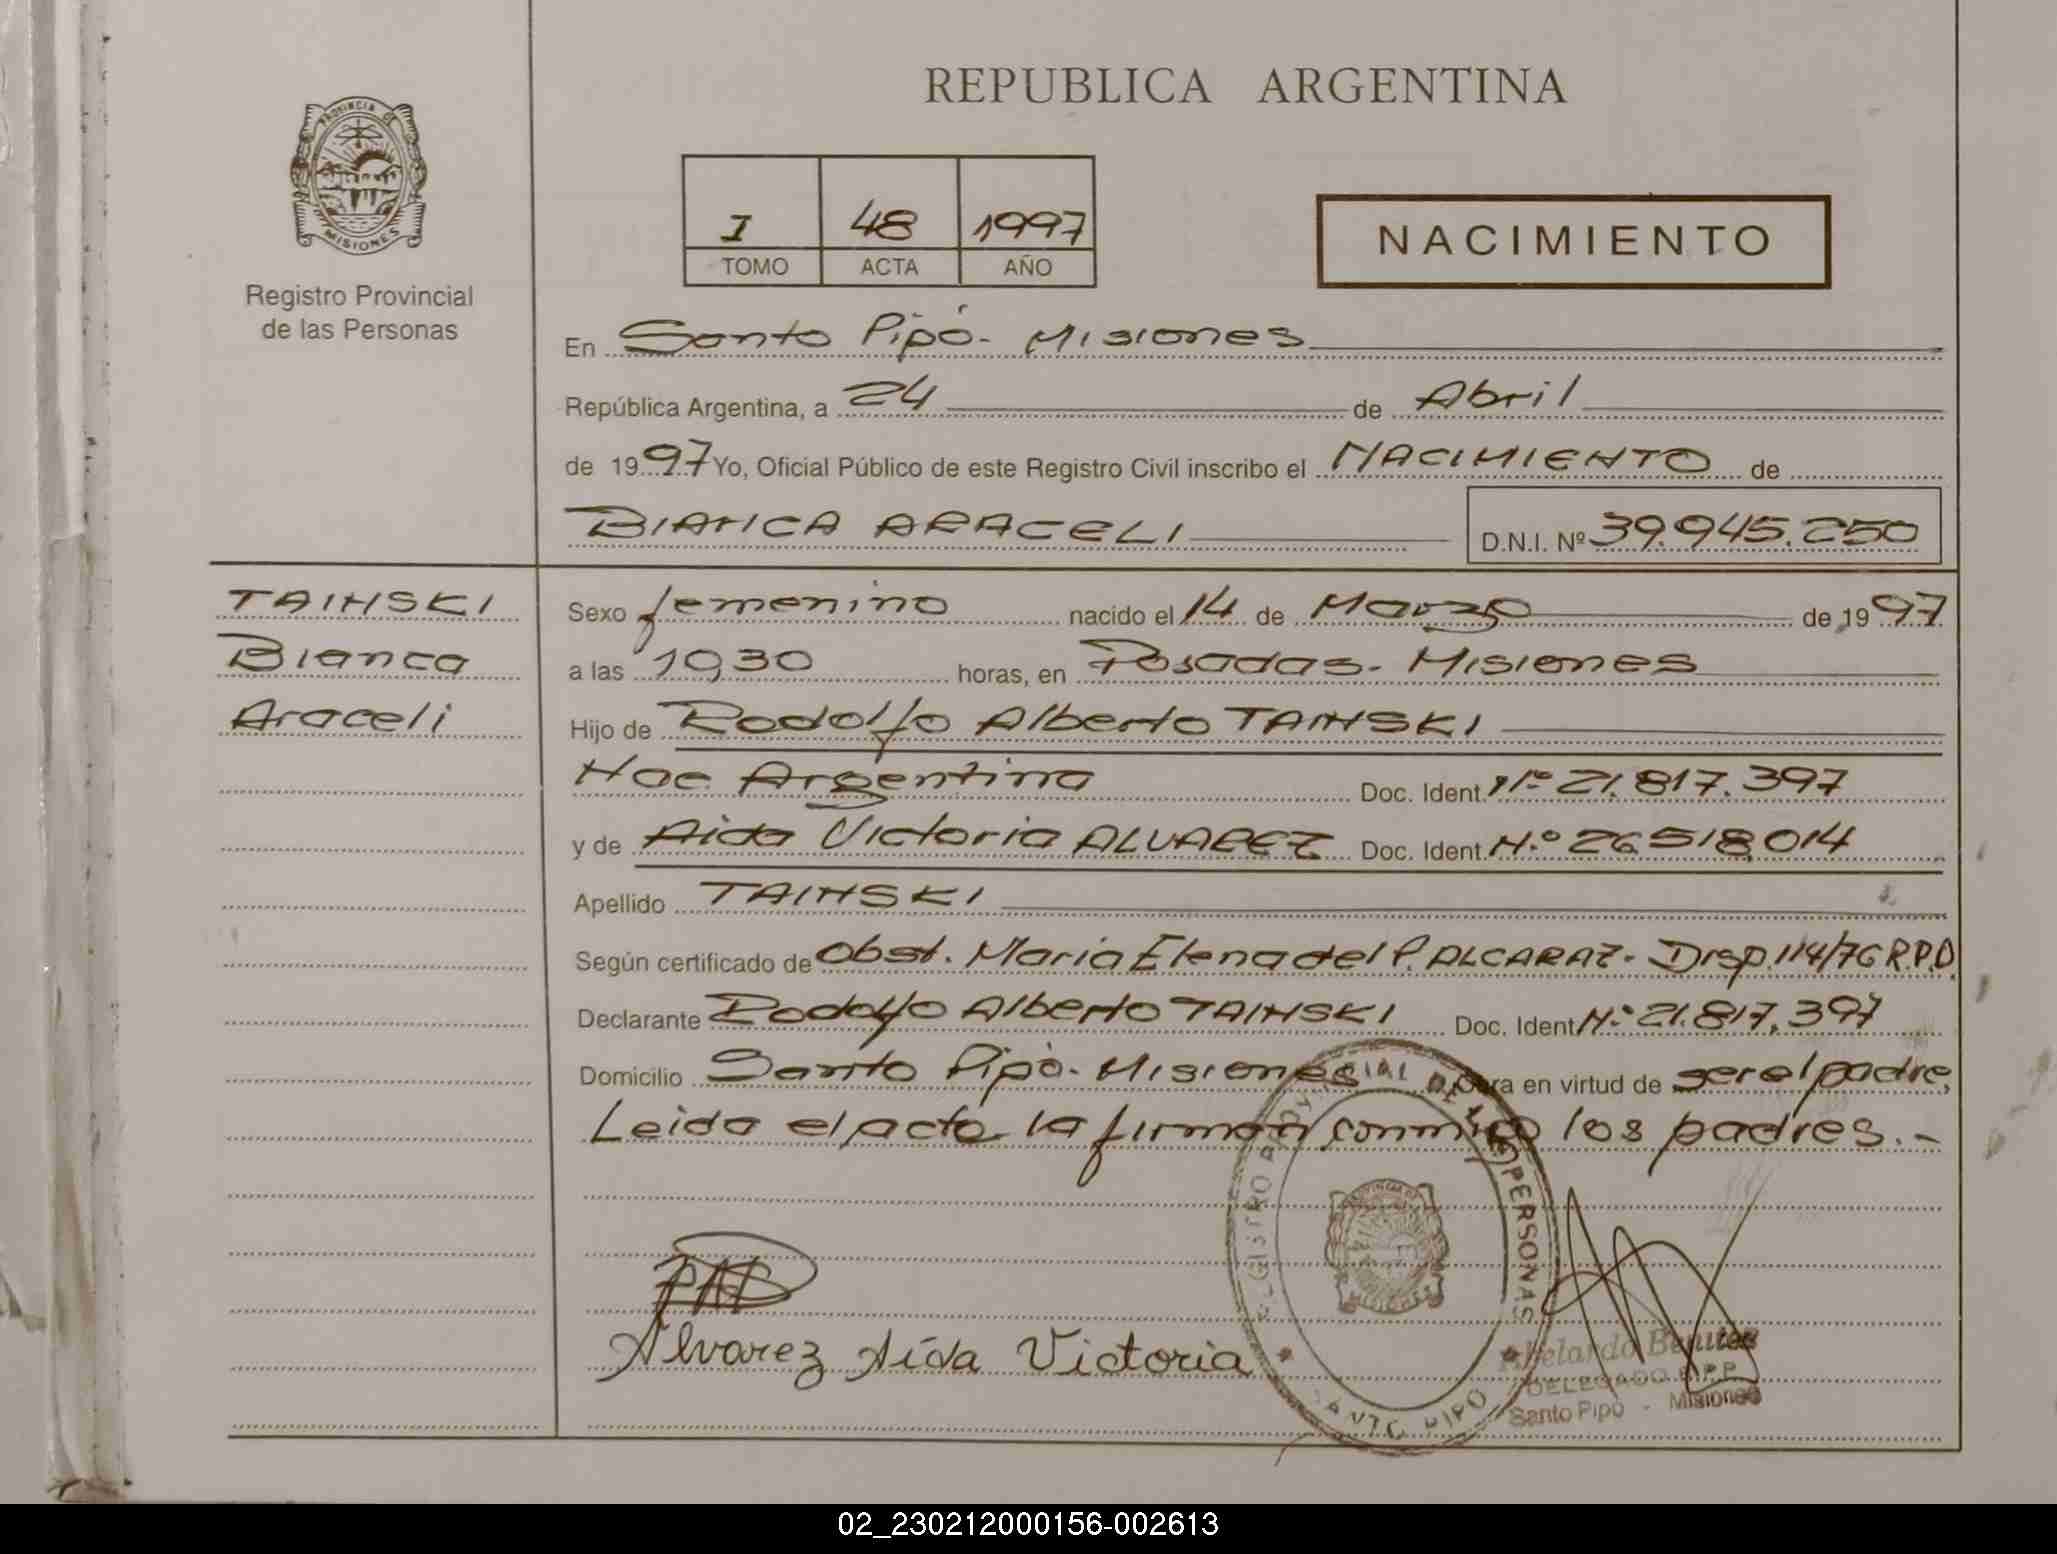 REPUBLICA ARGENTINA
PROVINCIA DE
MISIONES
Registro Provincial
de las Personas
I 48 1997
TOMO ACTA AÑO
NACIMIENTO
En Santo Pipó - Misiones
República Argentina, a 24 de Abril
de 1997 Yo, Oficial Público de este Registro Civil inscribo el NACIMIENTO de
BIANCA ARACELI D.N.I. Nº 39.945.250
TAINSKI
Bianca
Araceli
Sexo femenino nacido el 14 de Marzo de 1997
a las 10,30 horas, en Posadas - Misiones
Hijo de Rodolfo Alberto TAINSKI
Nac. Argentina Doc. Ident. Nº 21.817.397
y de Aida Victoria ALVAREZ Doc. Ident. Nº 26.518.014
Apellido TAINSKI
Según certificado de Obst. Maria Elena del P. ALCARAZ - Disp. 114/76 R.P.D
Declarante Rodolfo Alberto TAINSKI Doc. Ident Nº 21.817.397
Domicilio Santo Pipó - Misiones Obra en virtud de ser el padre,
Leida el acta la firman conmigo los padres.-
REGISTRO PROVINCIAL DE LAS PERSONAS
PROVINCIA DE
MISIONES
SANTO PIPO
Alvarez Aída Victoria
Abelardo Benitez
DELEGADO R.P.P.
Santo Pipó - Misiones
02_230212000156-002613